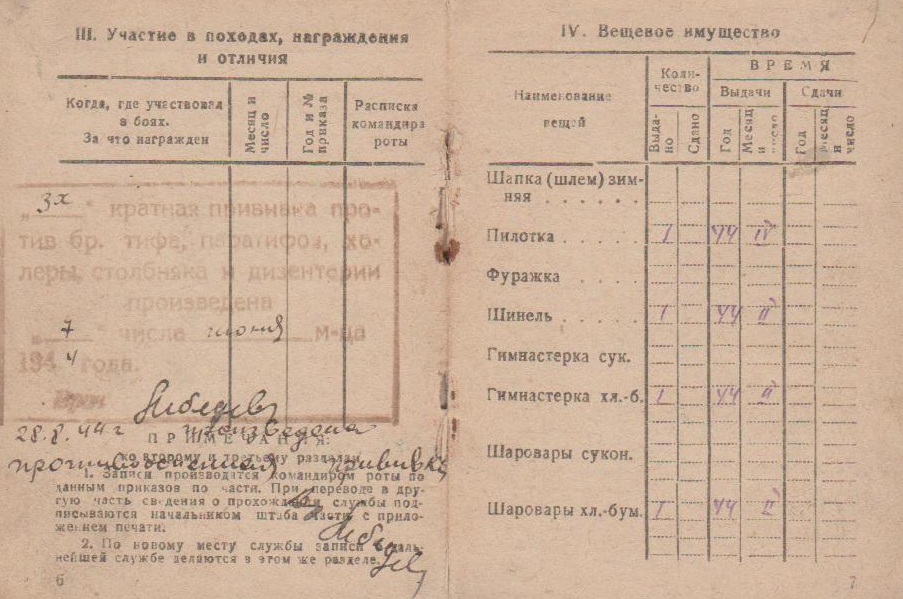 III. Участие в походах, награждения
и отличия
Когда, где участвовал
в боях.
За что награжден
Месяц и
число
Год и №
приказа
Расписка
командира
роты
„3х“ кратная прививка про-
тив бр. тифа, паратифов, хо-
леры, столбняка и дизентерии
произведена
„7“ числа июня м-ца
1944 года.
Врач
Лебедев
28.8.44 г произведена
ПРИМЕЧАНИЯ:
ко второму и третьему разделам
противооспенная прививка
1. Записи производятся командиром роты по
данным приказов по части. При переводе в дру-
гую часть сведения о прохождении службы под-
писываются начальником штаба части с прило-
жением печати.
2. По новому месту службы записи о даль-
нейшей службе делаются в этом же разделе.
6
IV. Вещевое имущество
Наименование
вещей
Коли-
чество
ВРЕМЯ
Выдачи
Сдачи
Выда-
но
Сдано
Год
Месяц
и
число
Год
Месяц
и
число
Шапка (шлем) зим-
няя . . . . . .
Пилотка . . . . . I 44 IV
Фуражка . . . .
Шинель . . . . . I 44 II
Гимнастерка сук.
Гимнастерка хл.-б. I 44 II
Шаровары сукон.
Шаровары хл.-бум. I 44 II
7